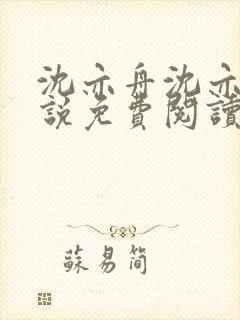 沈亦舟沈亦
說免費閱讀
蘇易簡